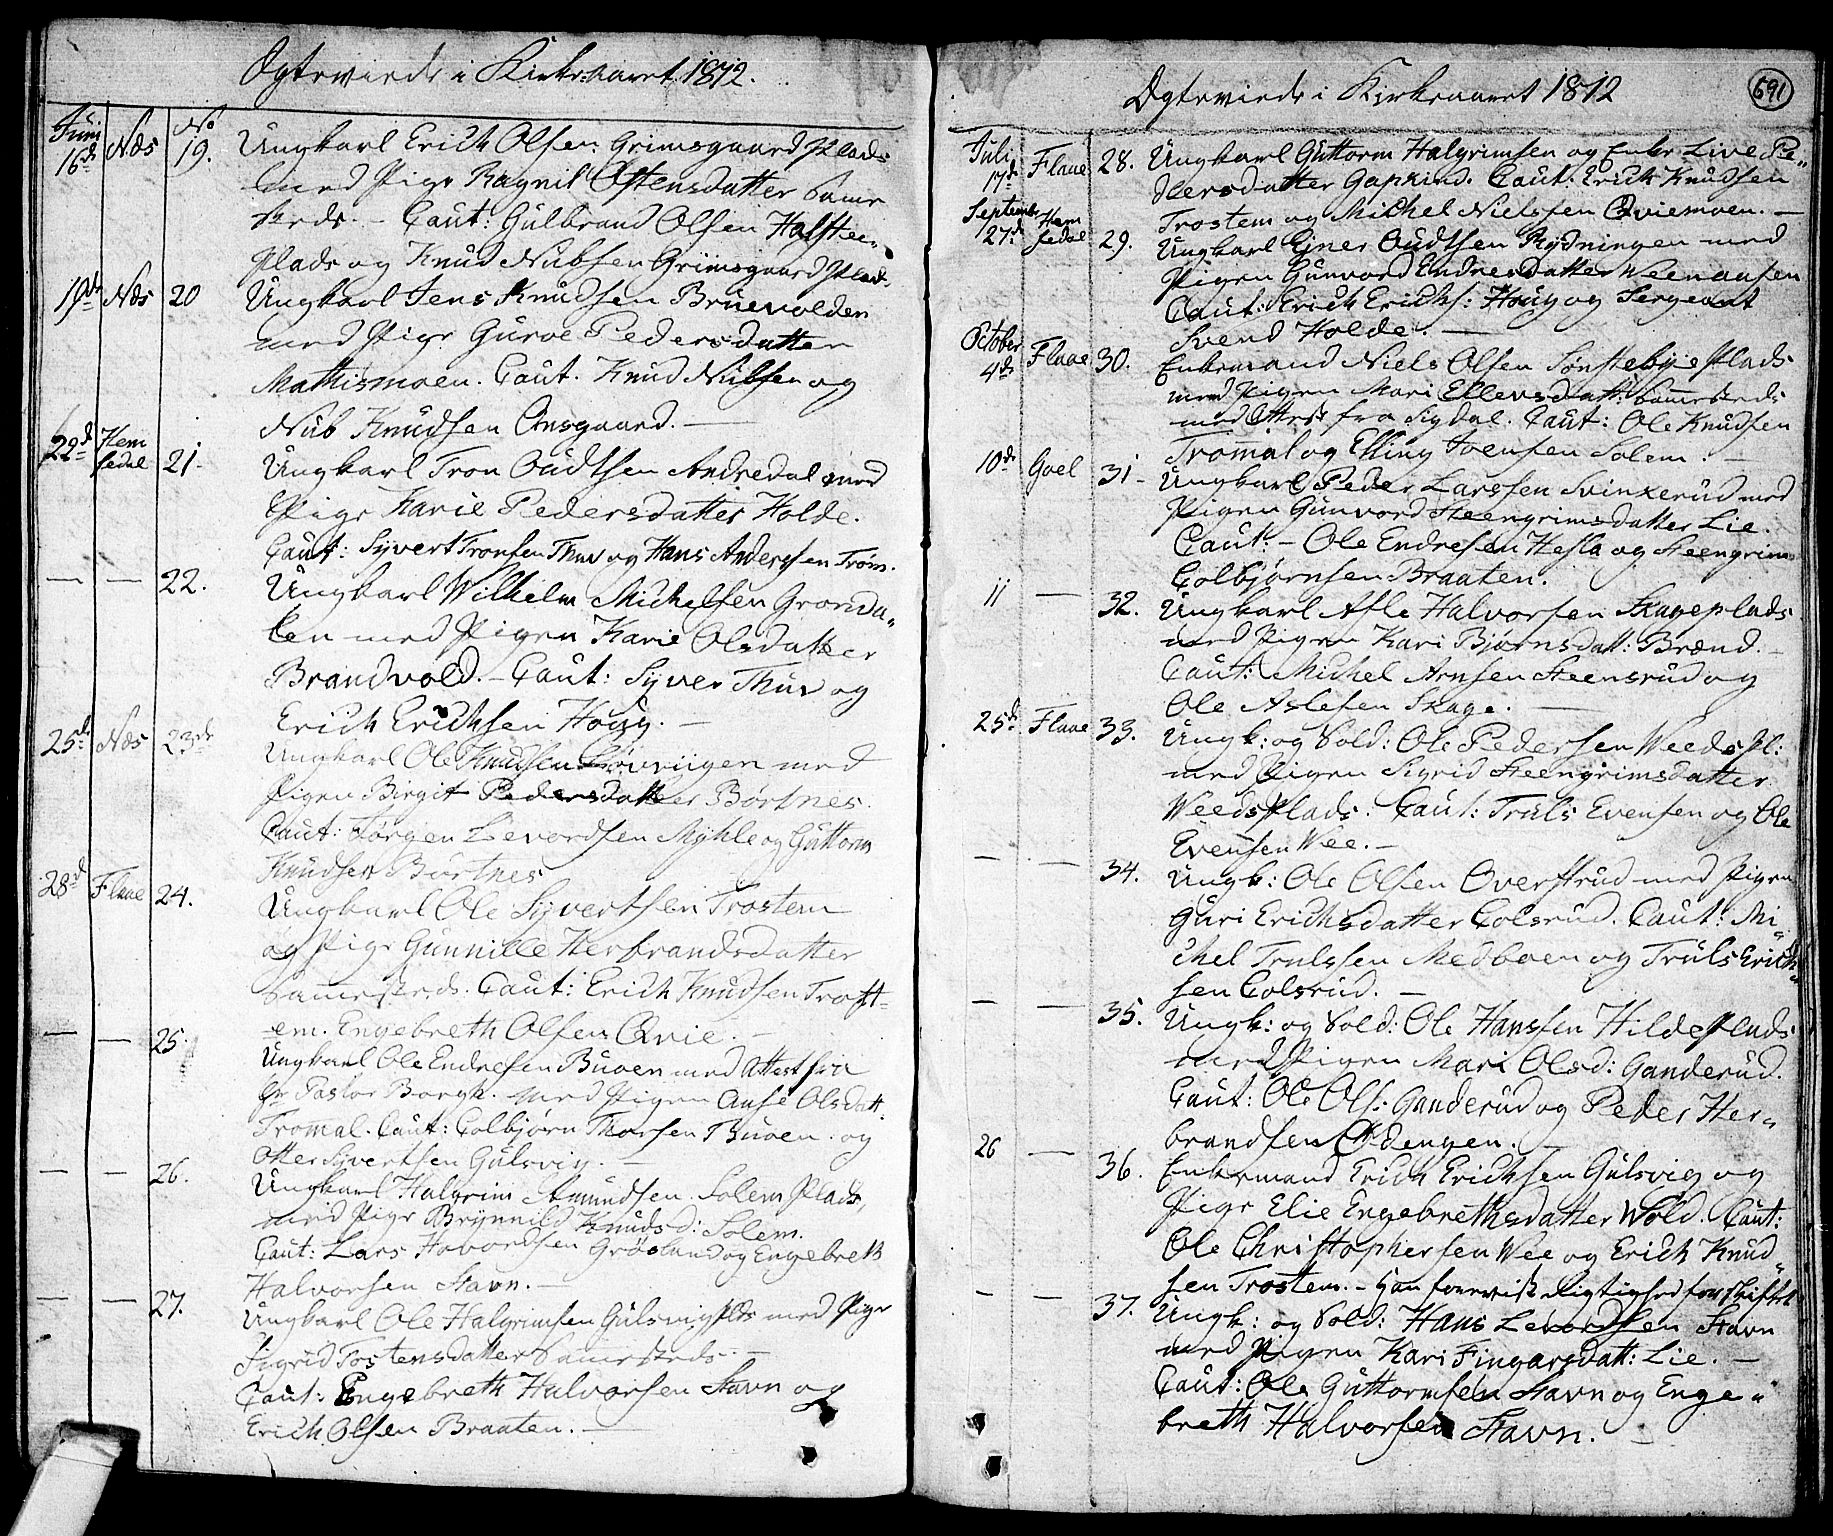 Ægteviede i Kirkeaaret 1812.
Juni No
16de Næs 19. Ungkarl Erich Olsen Grimsgaard Plads
med Pige Ragnil Østensdatter samme
steds. - Caut: Gulbrand Olsen Halstee„
Plads og Knud Nubsen Grimsgaard Plad.
19de Næs 20 Ungkarl Jens Knudsen Bruevolden
med Pige Guroe Pedersdatter
Mathismoen. Caut. Knud Nubsen og
Nub Knudsen Ansgaard. -
22de Hemsedal 21. Ungkarl Tron Oudtsen Andredal med
Pige Karie Pedersdatter Holde.
Caut: Syvert Tronsen Thuv og Hans Anderssen Trøm.
— — 22. Ungkarl Wilhelm Michelsen Grønda„
len med Pigen Karie Olsdatter
Brandvold. - Caut: Syver Thuv og
Erich Erichsen Houg. -
25de Næs 23de Ungkarl Ole Knudsen med
Pigen Birgit Pedersdatter Børtnes.
Caut: Jørgen Levordsen Myhle og Guttorm
Knudsen Børtnes
28de Flaae 24. Ungkarl Ole Syvertsen Trostem
og Pige Gunnille Herbrandsdatter
sammesteds. Caut: Erich Knudsen Trost-
em. Engebreth Olsen Qvie.
— — 25. Ungkarl Ole Endresen Buoen med Attest fra
Hr Pastor Borgh. med Pigen Aase Olsdatt.
Tromal. Caut: Colbjørn Thorsen Buoen og
Otter Syvertsen Gulsvig. -
— — 26. Ungkarl Halgrim Amundsen Solem Plads,
med Pige Brynnild Knudsd: Solem.
Caut: Lars Havordsen Grøsland og Engebreth
Halvorsen Stavn. -
— — 27. Ungkarl Ole Halgrimsen Gulsvig Plds med Pige
Sigrid Tostensdatter Sammesteds. -
Caut: Engebreth Halvorsen Stavn og
Erich Olsen Braaten. -
Ægteviede i Kirkeaaret 1812
691
Juli
17de Flaae 28. Ungkarl Guttorm Halgrimsen og Enke Live Pe„
dersdatter Gapkind. Caut. Erich Knudsen
Trostem og Michel Nielsen Qviemoen. -
September
27de Hemsedal 29. Ungkarl Ejner Oudtsen Rydningen med
Pigen Gunvord Endresdatter Weenaasen
Caut: Erich Erichs: Houg og Sergeant
Svend Holde. -
October
4de Flaae 30. Enkemand Niels Olsen Sønstebye Plads
med Pigen Mari Ellensdatt: sammesteds
med Attest fra Sigdal. Caut: Ole Knudsen
Tromal og Elling Svensen Solem. -
10de Goel 31- Ungkarl Peder Larssen Svinkerud med
Pigen Gunvord Steengrimsdatter Lie.
Caut: - Ole Endresen Hesla og Steengrim
Colbjørnsen Braaten.
11 — 32. Ungkarl Asle Halvorsen Skageplads
med Pigen Kari Bjørnsdatt: Brænd. -
Caut: Michel Arnsen Steensrud og
Ole Aslesen Skage. -
25de Flaae 33. Ungk: og Sold: Ole Pedersen Weeds Pl:
med Pigen Sigrid Steengrimsdatter
Weeds Plads. Caut: Truls Evensen og Ole
Evensen Wee. -
— — 34. Ungk: Ole Olsen Overstrud med Pigen
Guri Erichsdatter Colsrud. Caut: Mi„
chel Trulssen Medboen og Truls Erich„
sen Colsrud. -
— — 35. Ungk: og Sold: Ole Hanssen Hilde Plads
med Pigen Mari Olsd: Ganderud.
Caut: Ole Ols: Ganderud og Peder Her„
brandsen Ødengen.
26 — 36. Enkemand Erich Erichsen Gulsvig og
Pige Elie Engebrethsdatter Wold. Caut:
Ole Christophersen Wee og Erich Knud„
sen Trostem. - Han foreviste Rigtighed for Skiftet
— — 37. Ungk: og Sold: Hans Levordsen Stavn
med Pigen Kari Fingarsdatt: Lie. -
Caut: Ole Guttormsen Stavn og Enge„
breth Halvorsen Stavn. -